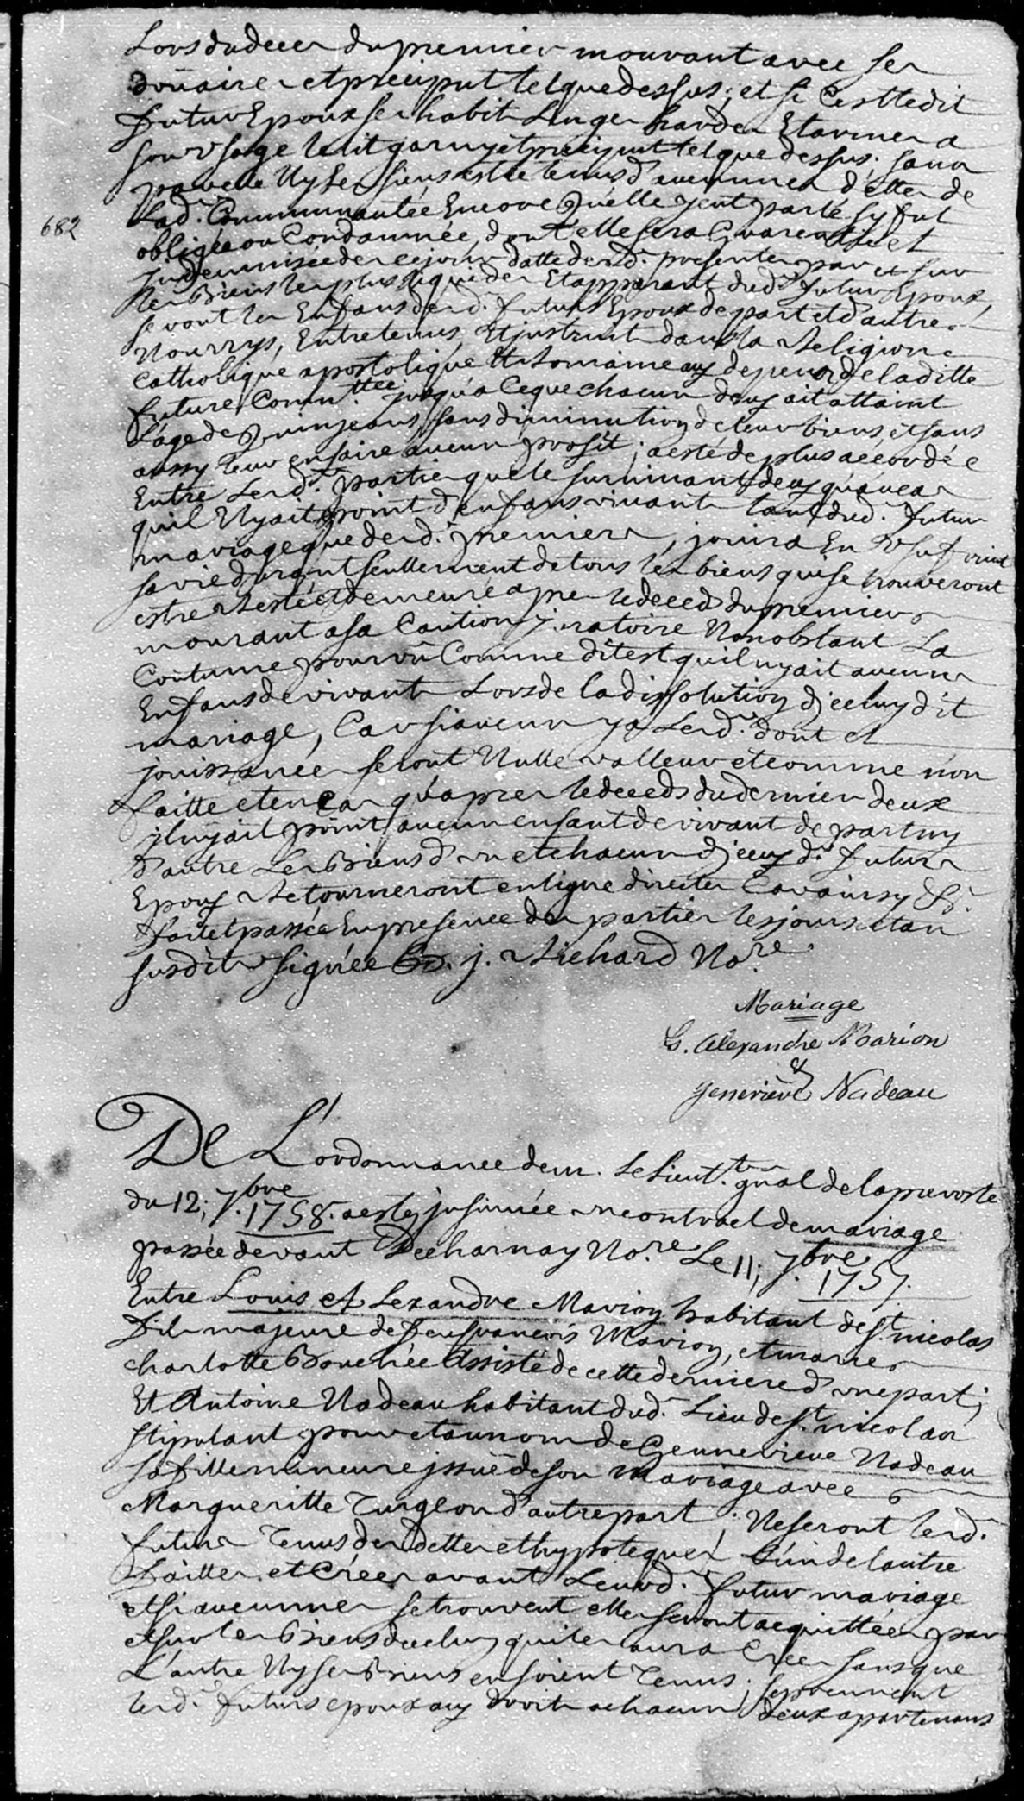 Lors du deces du premier mourant avec ses
doüaire et preciput tel que dessus; et si c'est ledit
futur Epoux ses habits Linges hardes Et armes a
son usage le lit garny et preciput tel que dessus. sans
par elle Ny Ses biens estre tenus d'aucunnes dettes de
Lad. Communautée Encore qu'elle y eut parlé, s'y fut
682
obligée ou Condamnée, dont elle sera Guarentie et
Indemnisée des ce jour datte desd. presentes par et sur
les Biens les plus liquides Et apparant dud. futur Epoux,
seront les Enfans desd. futurs Epoux de part et d'autre
Nourrys, Entretenus, Et instruit dans la Religion
Catholique apostolique et Romaine aux depens de la ditte
future Comm.ttée jusqu'a ce que chacun d'eux ait attaint
L'age de quinze ans, sans diminution de leur biens et sans
aussy leur en faire aucun profit; a esté de plus accordée
Entre Lesd. partie que le survivant d'eux qu'au cas
qu'il N'y ait point d'enfans vivant tant dud. futur
mariage que desd. premiers, jouira En Usufruit
sa vie durant seullement de tous les biens qui se trouveront
estre Resté et demeuré apres le deceds du premier
mourant a sa Caution juratoire Nonobstant La
Coûtume pourvû Comme dit est qu'il n'y ait aucuns
Enfans de vivant Lors de la dissolution d'jceluy dit
mariage, Car si aucuns y a Lesd. dont et
jouissance seront Nulle valleur et comme non
faitte et en cas qu'apres le deceds du dernier deux
il n'y ait point aucun enfant de vivant de part ny
d'autre Les Biens d'un et chacun d'jceux d. futurs
Epoux Retourneront en ligne directe Car ainsy &c.
fait et passée En presence des parties les jours et an
susdit signée J. Richard No.re
Mariage
L. Alexandre Marion
&
Genevieve Nadeau
De L'ordonnance de m. Le Lieut.t gnal de la prevosté
du 12; 7.bre 1758. a esté jnsinuée un contract de mariage
passée devant Decharnay No.re Le 11; 7.bre 1757.
Entre Louis aLexandre Marion habitant de St. nicolas
fils majeure de feu françois Marion, et marie
charlotte Bouchée Assisté de cette derniere d'une part;
Et Antoine Nadeau habitant dud. Lieu de St. nicolas
stipulant pour et au nom de Gennevieve Nadeau
sa fille mineure jssuë de son mariage avec
Margueritte Turgeon d'autre part; Ne seront lesd.
futurs Tenus des dettes et hypoteques L'un de l'autre
faittes et Créés avant Leurd. futur mariage
et si aucunnes se trouvent elles seront acquittées par
et sur les Biens de celuy qui les aura Créés sans que
L'autre Ny ses Biens en soient Tenus; se prennent
lesd. futurs epoux aux droits a chacun d'eux apartenans